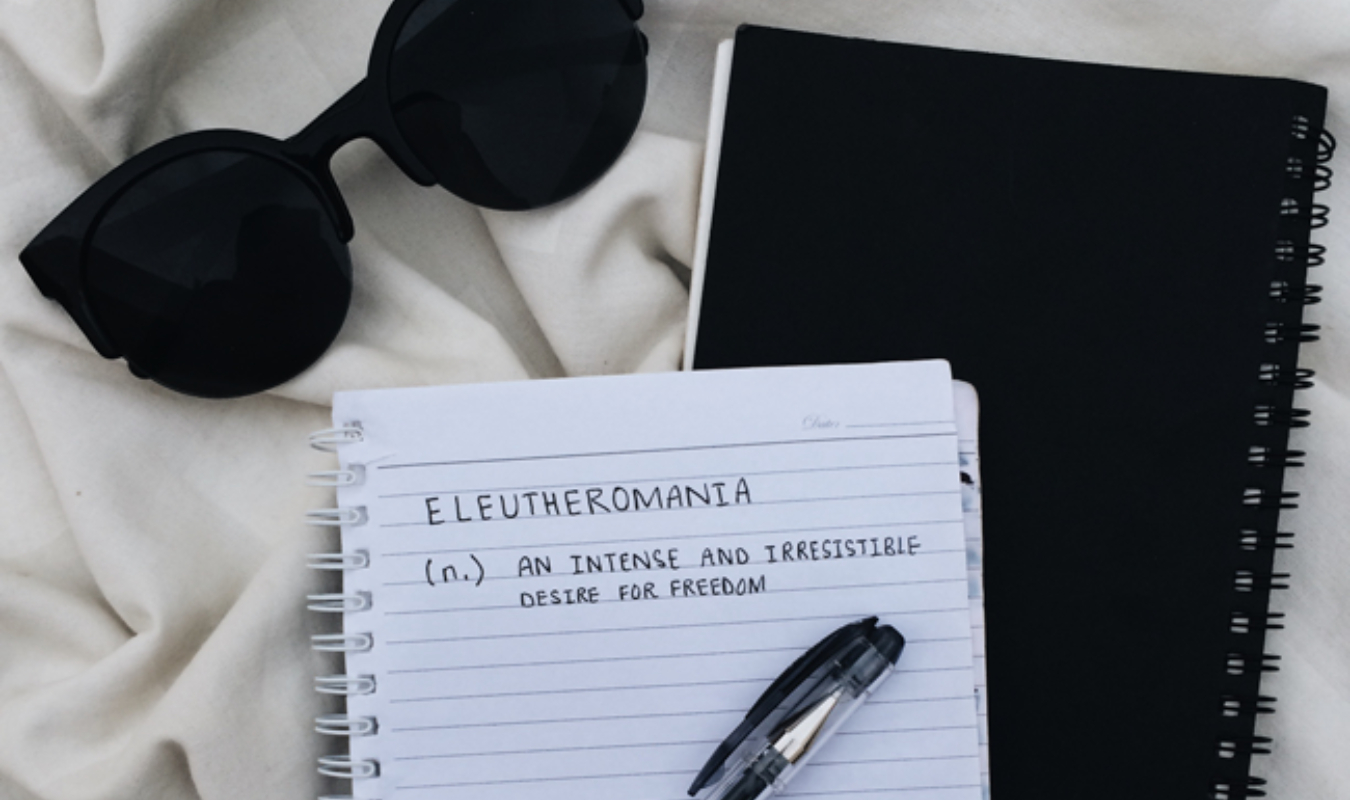 Date
ELEUTHEROMANIA
(n.) AN INTENSE AND IRRESISTIBLE
DESIRE FOR FREEDOM